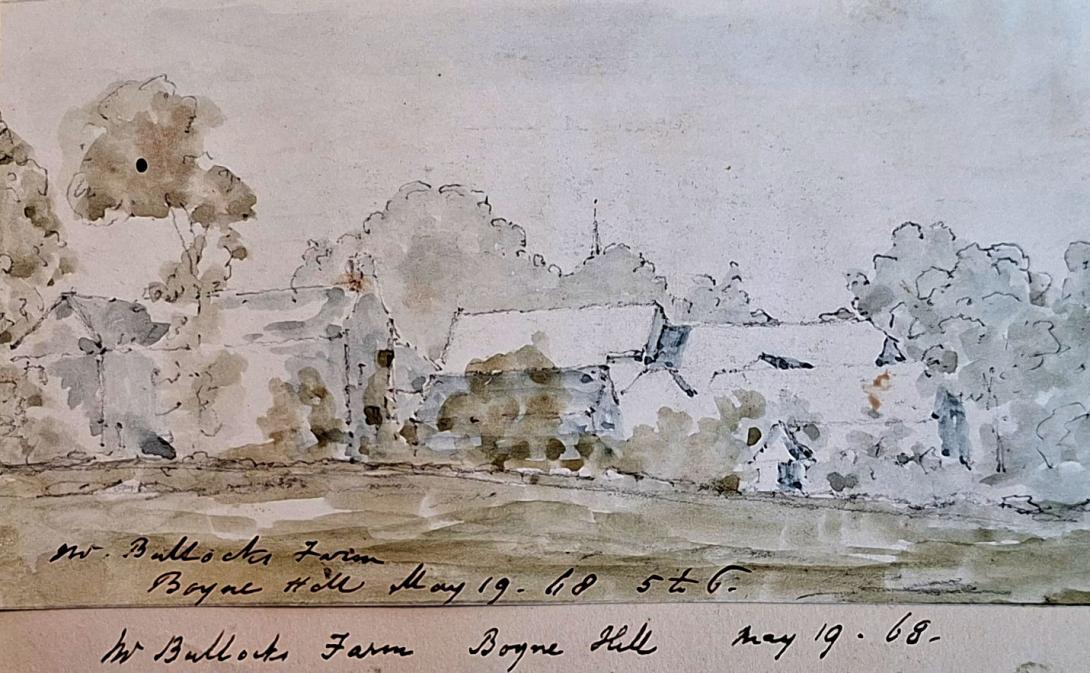 Mr. Bullocks Farm
Boyne Hill May 19. 68 5 to 6.
Mr Bullocks Farm Boyne Hill May 19. 68.